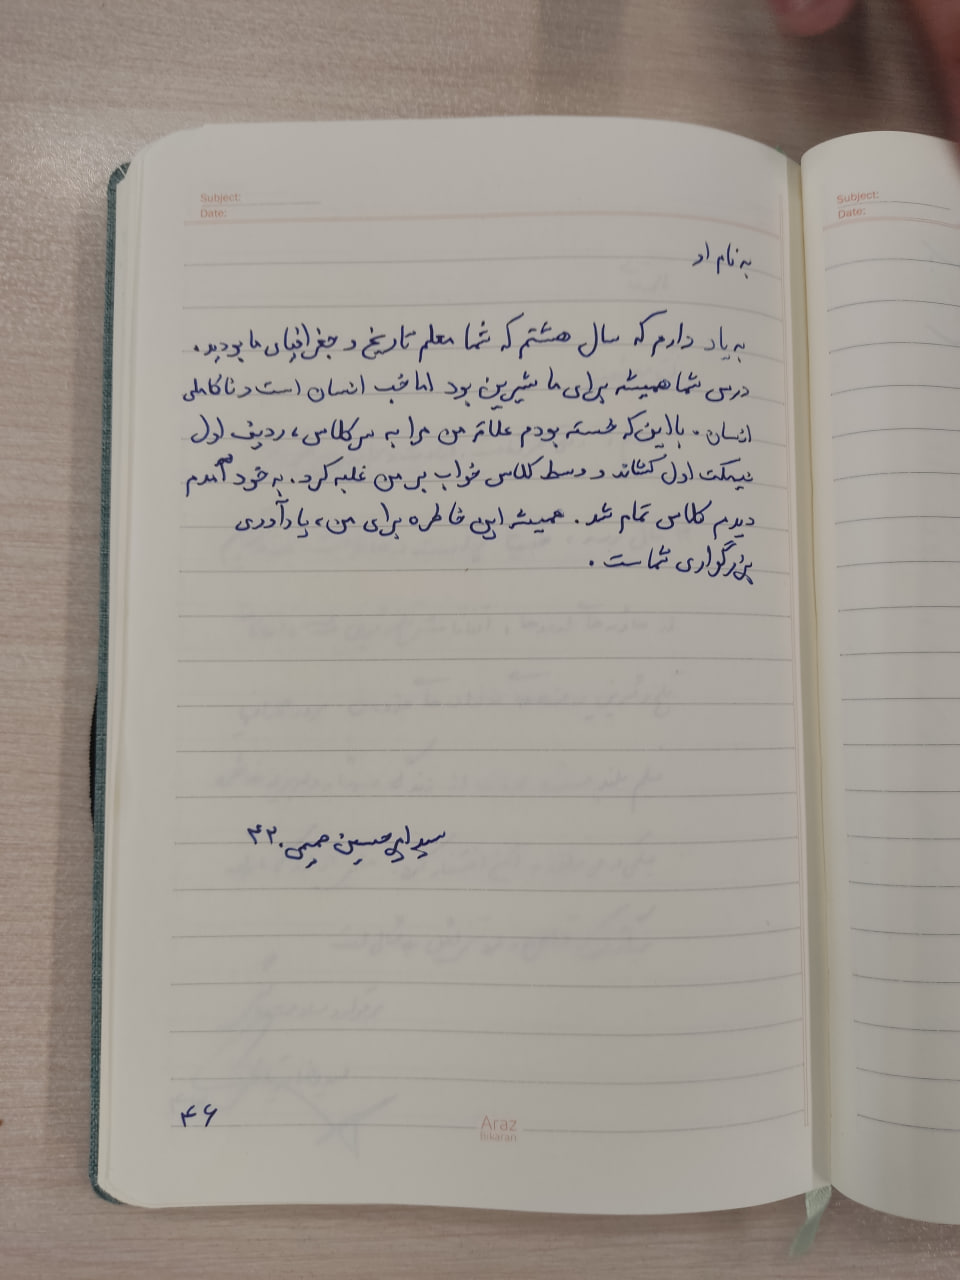 Subject:
Date:
به نام او
به یاد دارم که سال هشتم که شما معلم تاریخ و جغرافیای ما بودید.
درس شما همیشه برای ما شیرین بود اما خب انسان است و ناکاملی
انسان. با این که خسته بودم علاقه من مرا به سر کلاس، ردیف اول
نیمکت اول کشاند و وسط کلاس خواب بر من غلبه کرد. به خود آمدم
دیدم کلاس تمام شد. همیشه این خاطره برای من، یادآوری
بزرگواری شماست.
سید امیرحسین
۴۶
Araz
Bikaran
Subject:
Date: